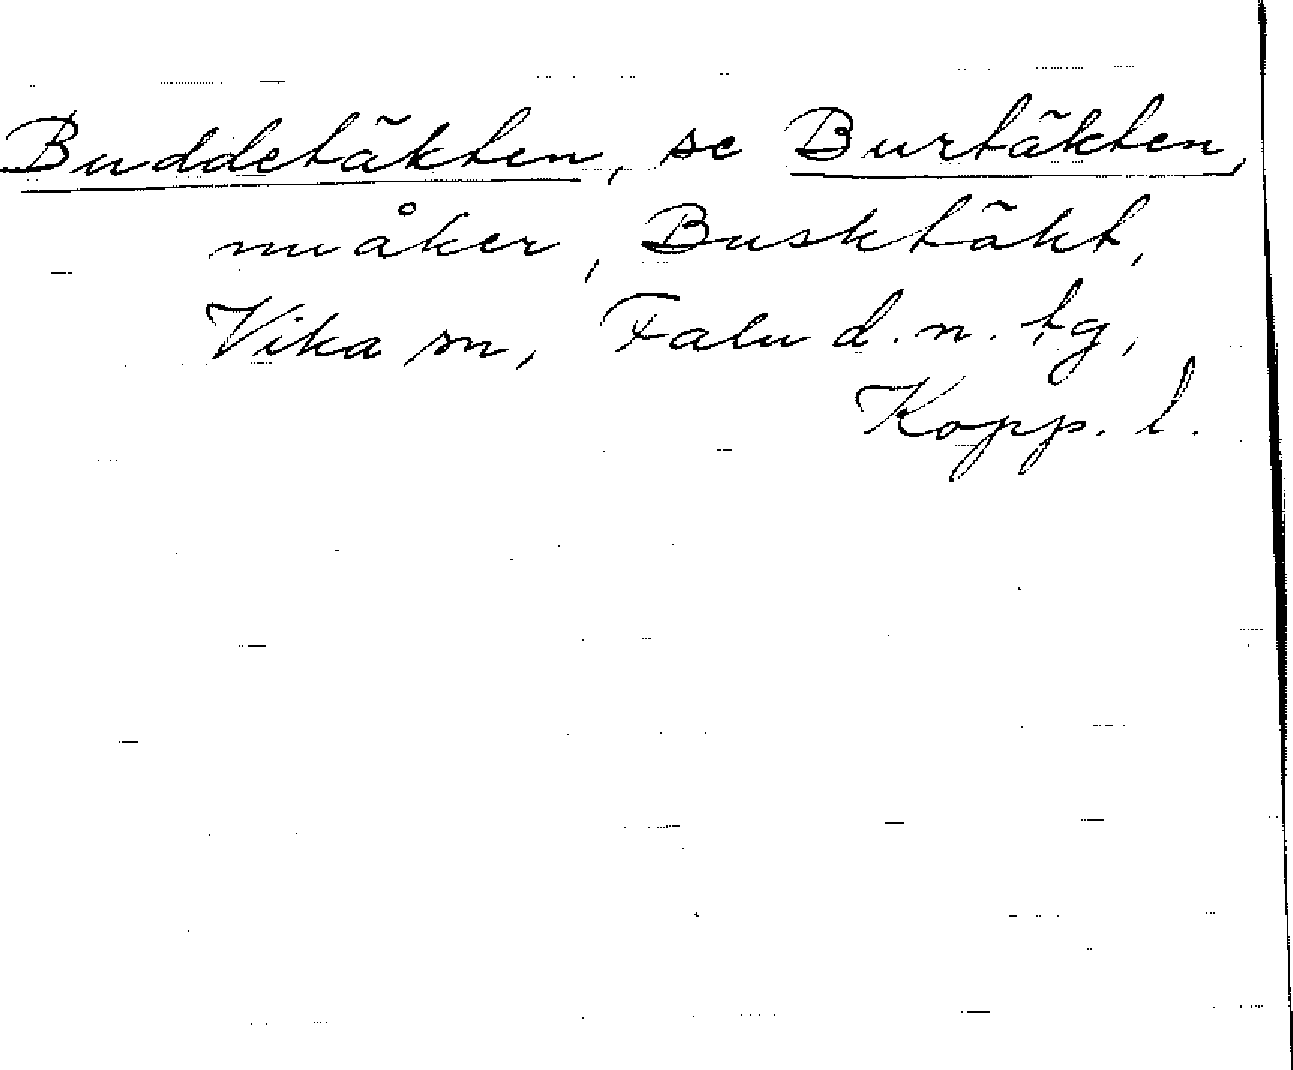 Buddetäkten, se Burtäkten,
nu åker, Busktäkt,
Vika sn, Falu d. n. tg,
Kopp. l.